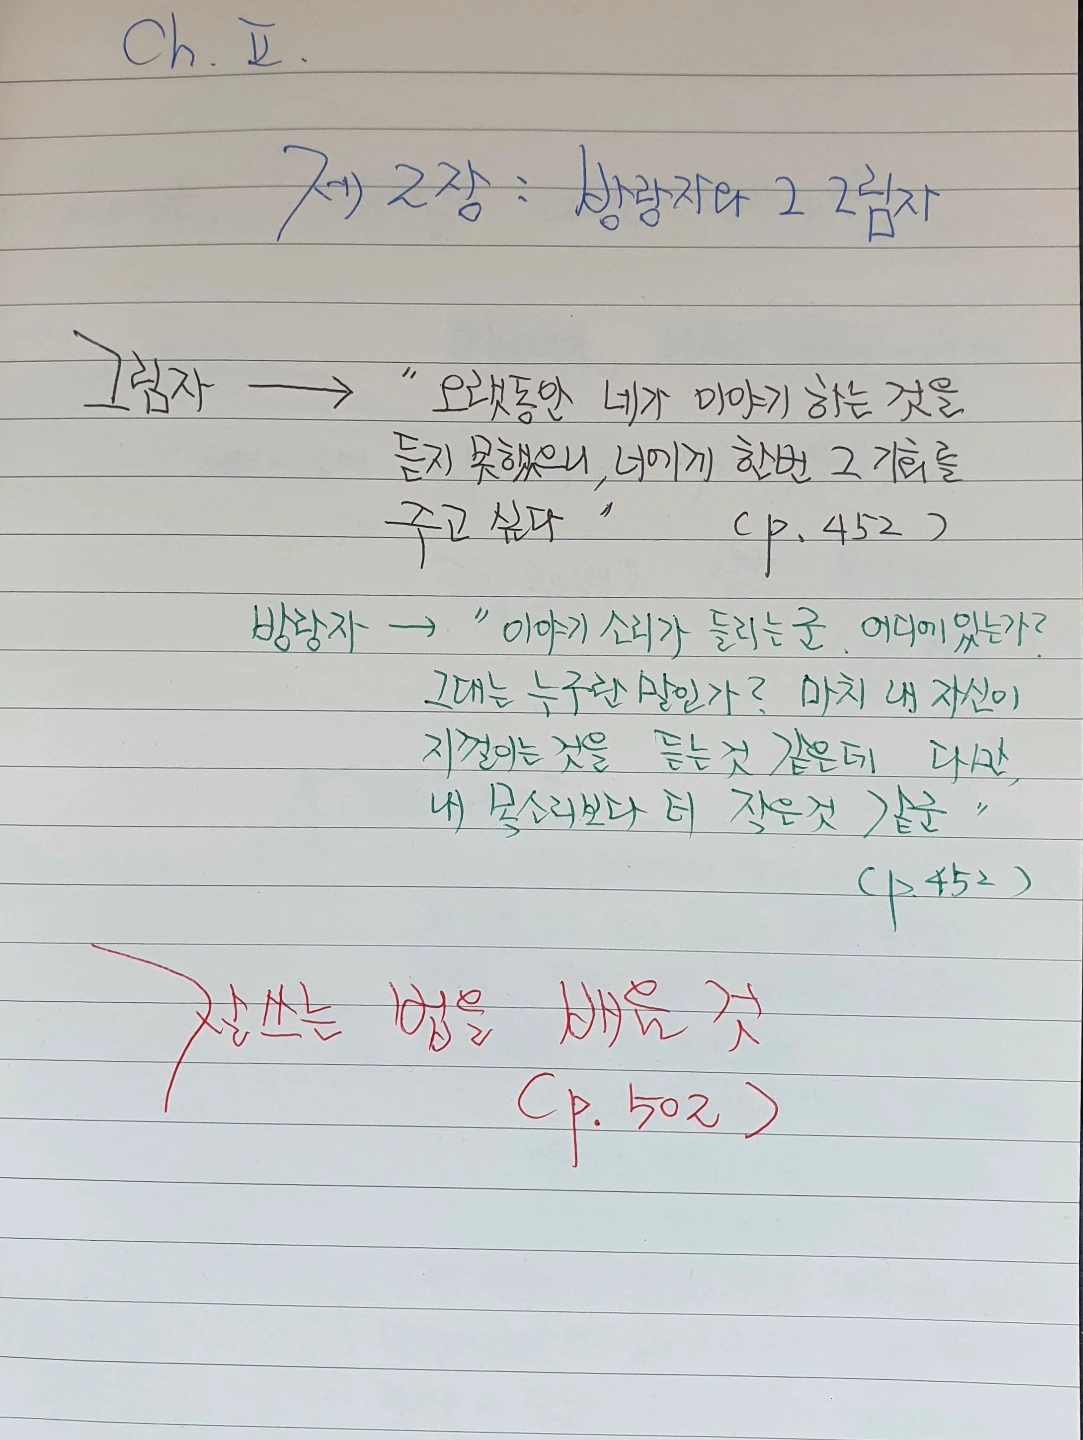 Ch. II.
제 2장 : 방랑자와 그 그림자
그림자 → " 오랫동안 네가 이야기 하는 것을
듣지 못했으니, 너에게 한번 그 기회를
주고 싶다 " (p. 452)
방랑자 → " 이야기 소리가 들리는군. 어디에 있는가?
그대는 누구란 말인가? 마치 내 자신이
지껄이는 것을 듣는것 같은데 다만,
내 목소리보다 더 작은것 같군 "
(p. 452)
잘 쓰는 법을 배울 것
(p. 502)